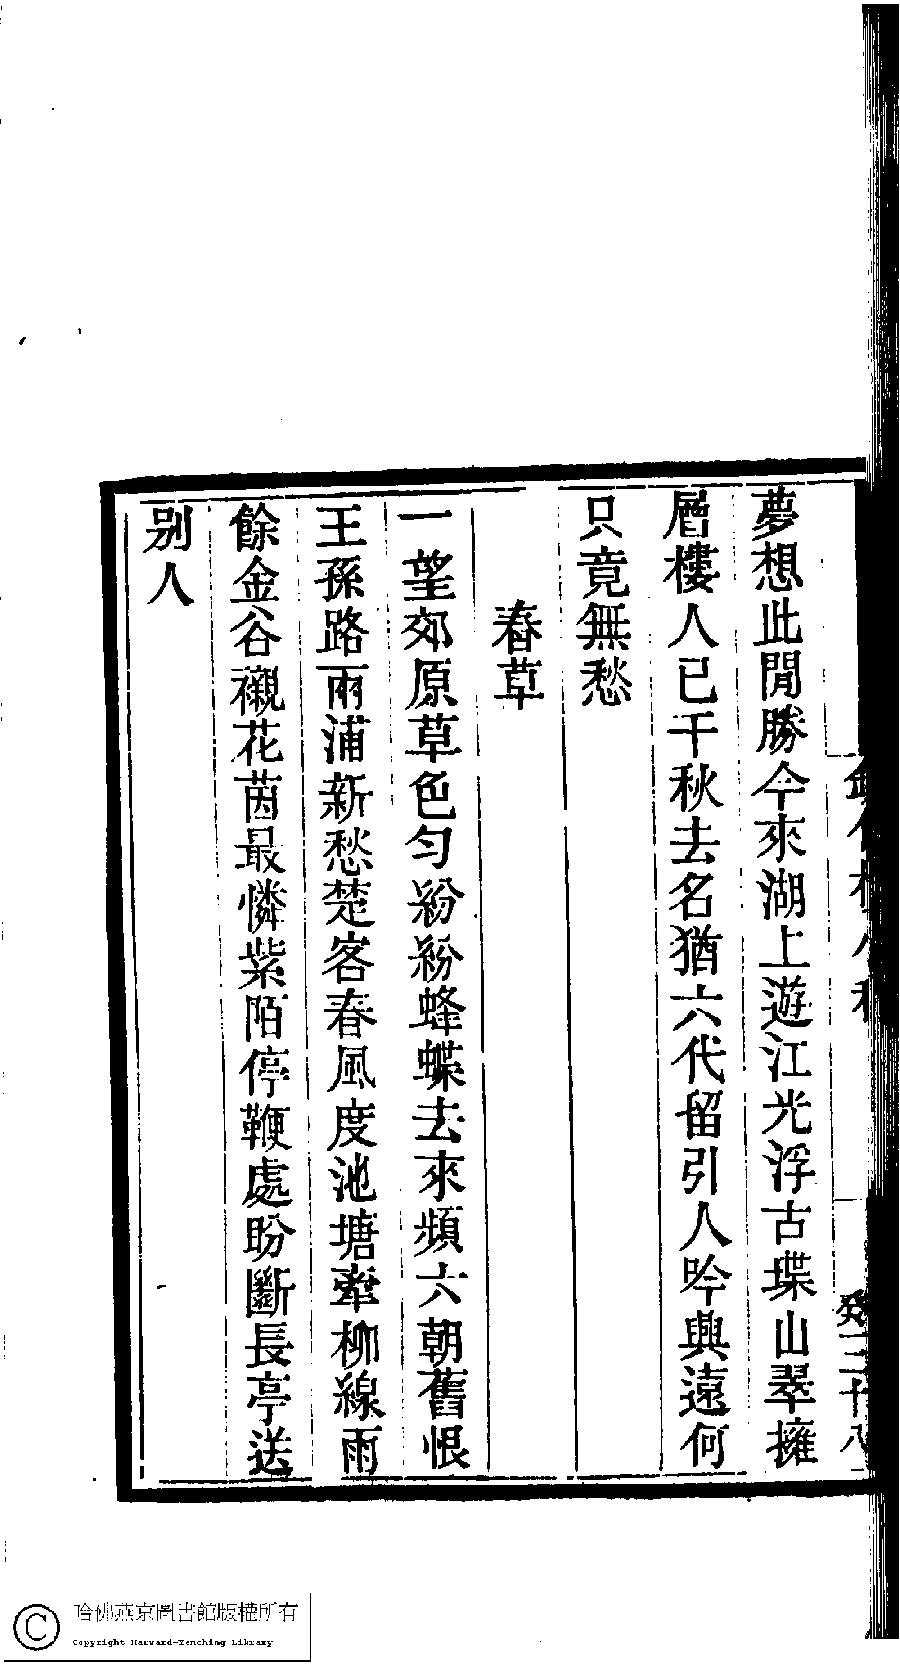 夢想此閒勝今來湖上遊江光浮古堞山翠擁
層樓人已千秋去名猶六代留引人吟興遠何
只竟無愁
春草
一望郊原草色勻紛紛蜂蝶去來頻六朝舊恨
王孫路兩浦新愁楚客春風度池塘牽柳線雨
餘金谷襯花茵最憐紫陌停鞭處盼斷長亭送
别人
哈佛燕京圖書館版權所有
Copyright Harvard-Yenching Library